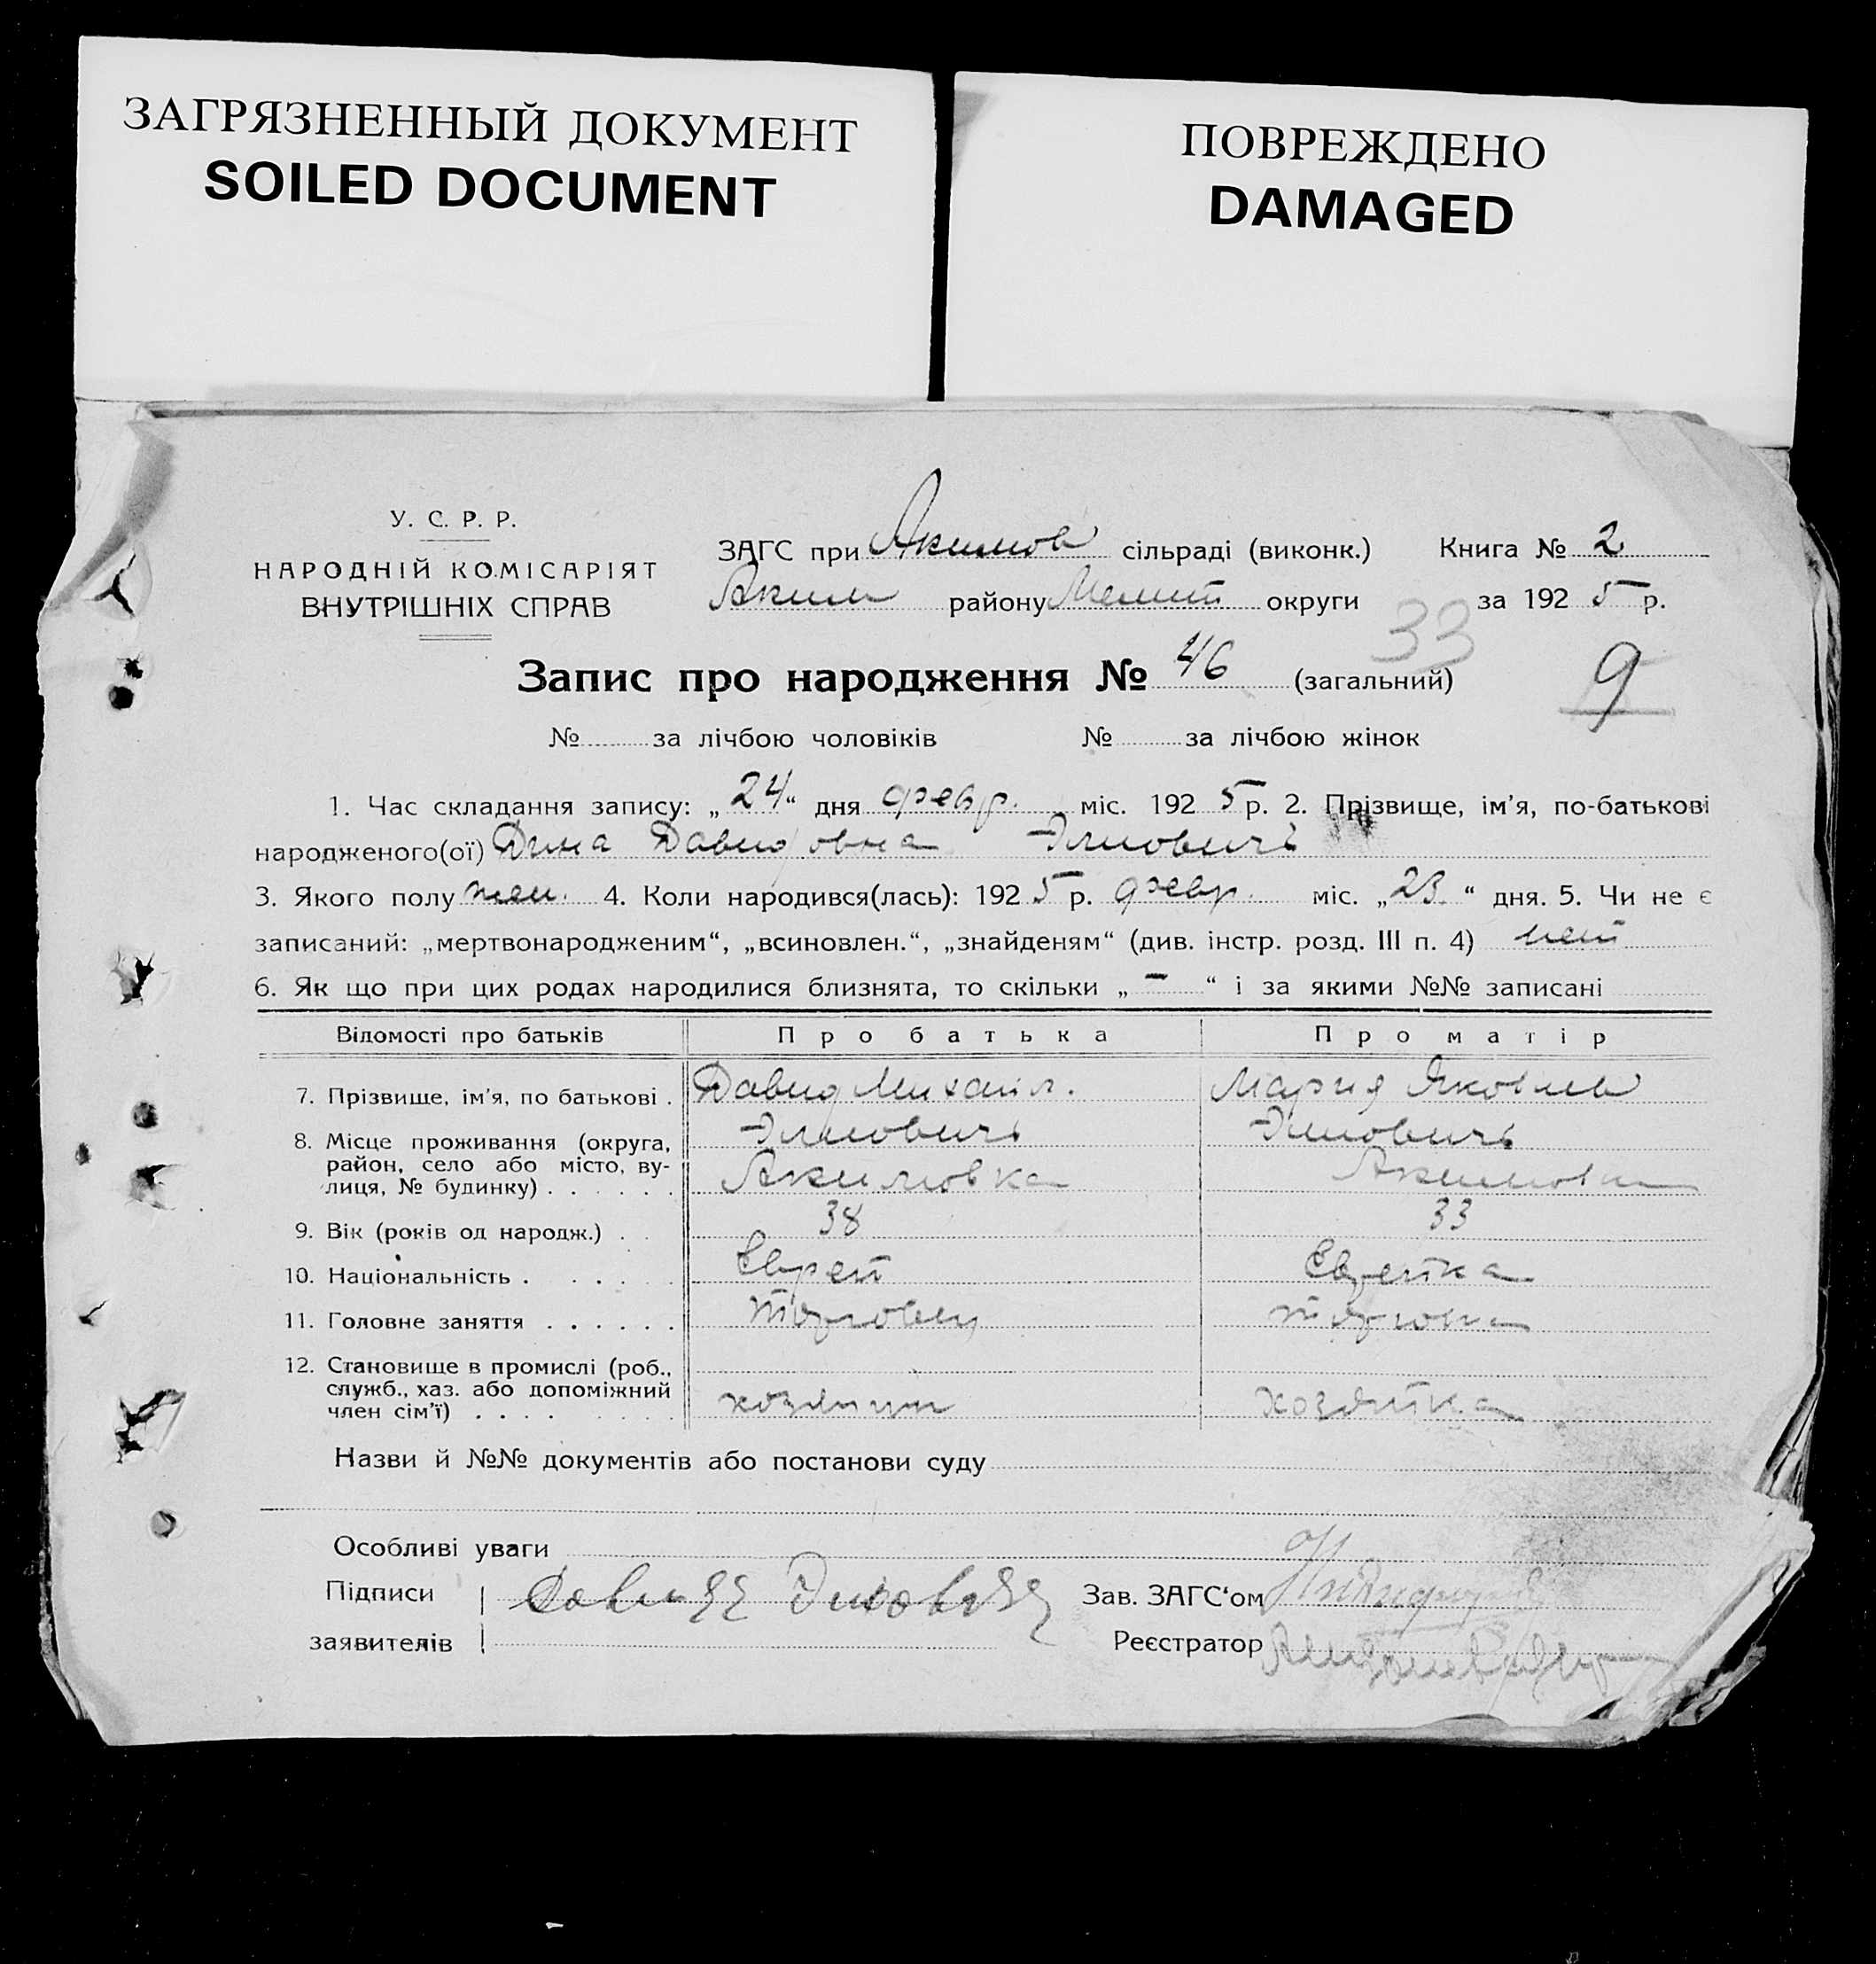 ЗАГРЯЗНЕННЫЙ ДОКУМЕНТ
SOILED DOCUMENT
ПОВРЕЖДЕНО
DAMAGED
У. С. Р. Р.
НАРОДНІЙ КОМІСАРІЯТ
ВНУТРІШНІХ СПРАВ
ЗАГС при Акимов сільраді (виконк.) Книга № 2
Аким району Мелит округи за 192 5 р.
33
Запис про народження № 46 (загальний)
9
№ за лічбою чоловіків № за лічбою жінок
1. Час складання запису: „ 24 “ дня февр. міс. 192 5 р. 2. Прізвище, ім’я, по-батькові
народженого(ої) Дина Давидовна
3. Якого полу жен. 4. Коли народився(лась): 192 5 р. февр. міс. „ 23 “ дня. 5. Чи не є
записаний: „мертвонародженим“, „всиновлен.“, „знайденям“ (див. інстр. розд. III п. 4) нет
6. Як що при цих родах народилися близнята, то скільки „ – “ і за якими №№ записані
Відомості про батьків Про батька Про матір
7. Прізвище, ім’я, по батькові . Давид Михайл. Мария Яковлев
8. Місце проживання (округа,
район, село або місто, ву-
лиця, № будинку) . . . . . . Акимовка Акимовка
9. Вік (років од народж.) . . 38 33
10. Національність . . . . . Еврей Еврейка
11. Головне заняття . . . . . . торговец торговка
12. Становище в промислі (роб.,
служб., хаз. або допоміжний
член сім’ї) . . . . . . . . хозяин хозяйка
Назви й №№ документів або постанови суду
Особливі уваги
Підписи
заявителів
Зав. ЗАГС‘ом
Реєстратор